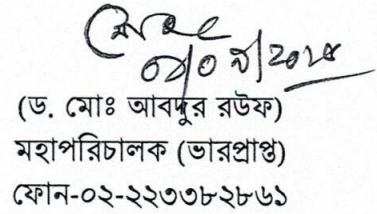 (ড. মোঃ আবদুর রউফ)
মহাপরিচালক (ভারপ্রাপ্ত)
ফোন-০২-২২৩৩৮২৮৬১